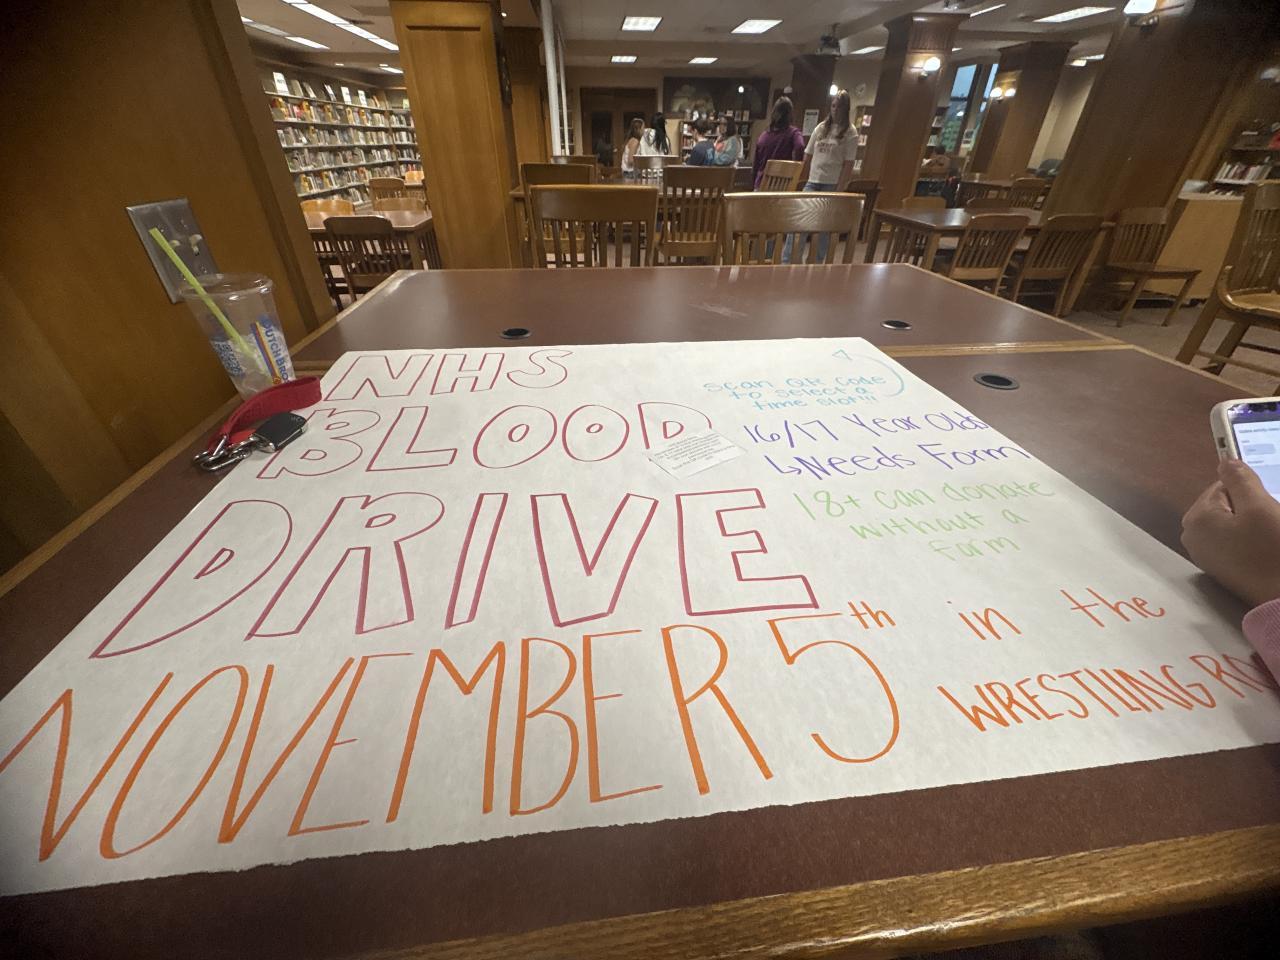 NHS
BLOOD
DRIVE
NOVEMBER 5th in the
WRESTLING
scan QR code
to select a
time slot!!!
16/17 Year Olds
↳Needs Form
18+ can donate
without a
form
DUTCH BRO